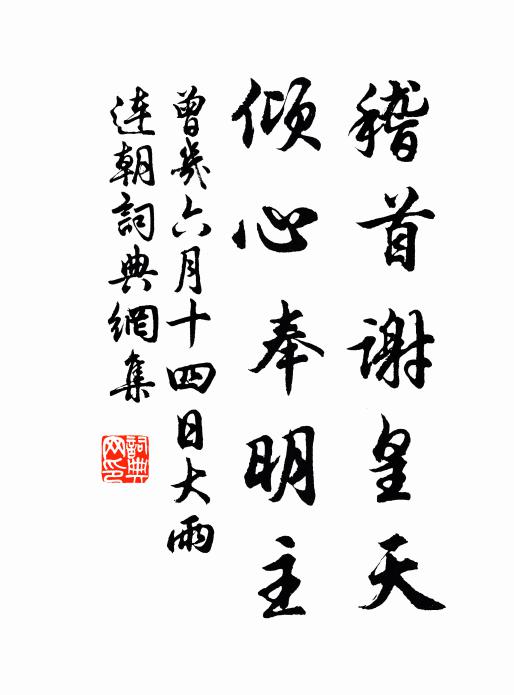 稽首謝皇天
傾心奉明主
曾幾六月十四日大雨
連朝詞典網集
詞典
网印